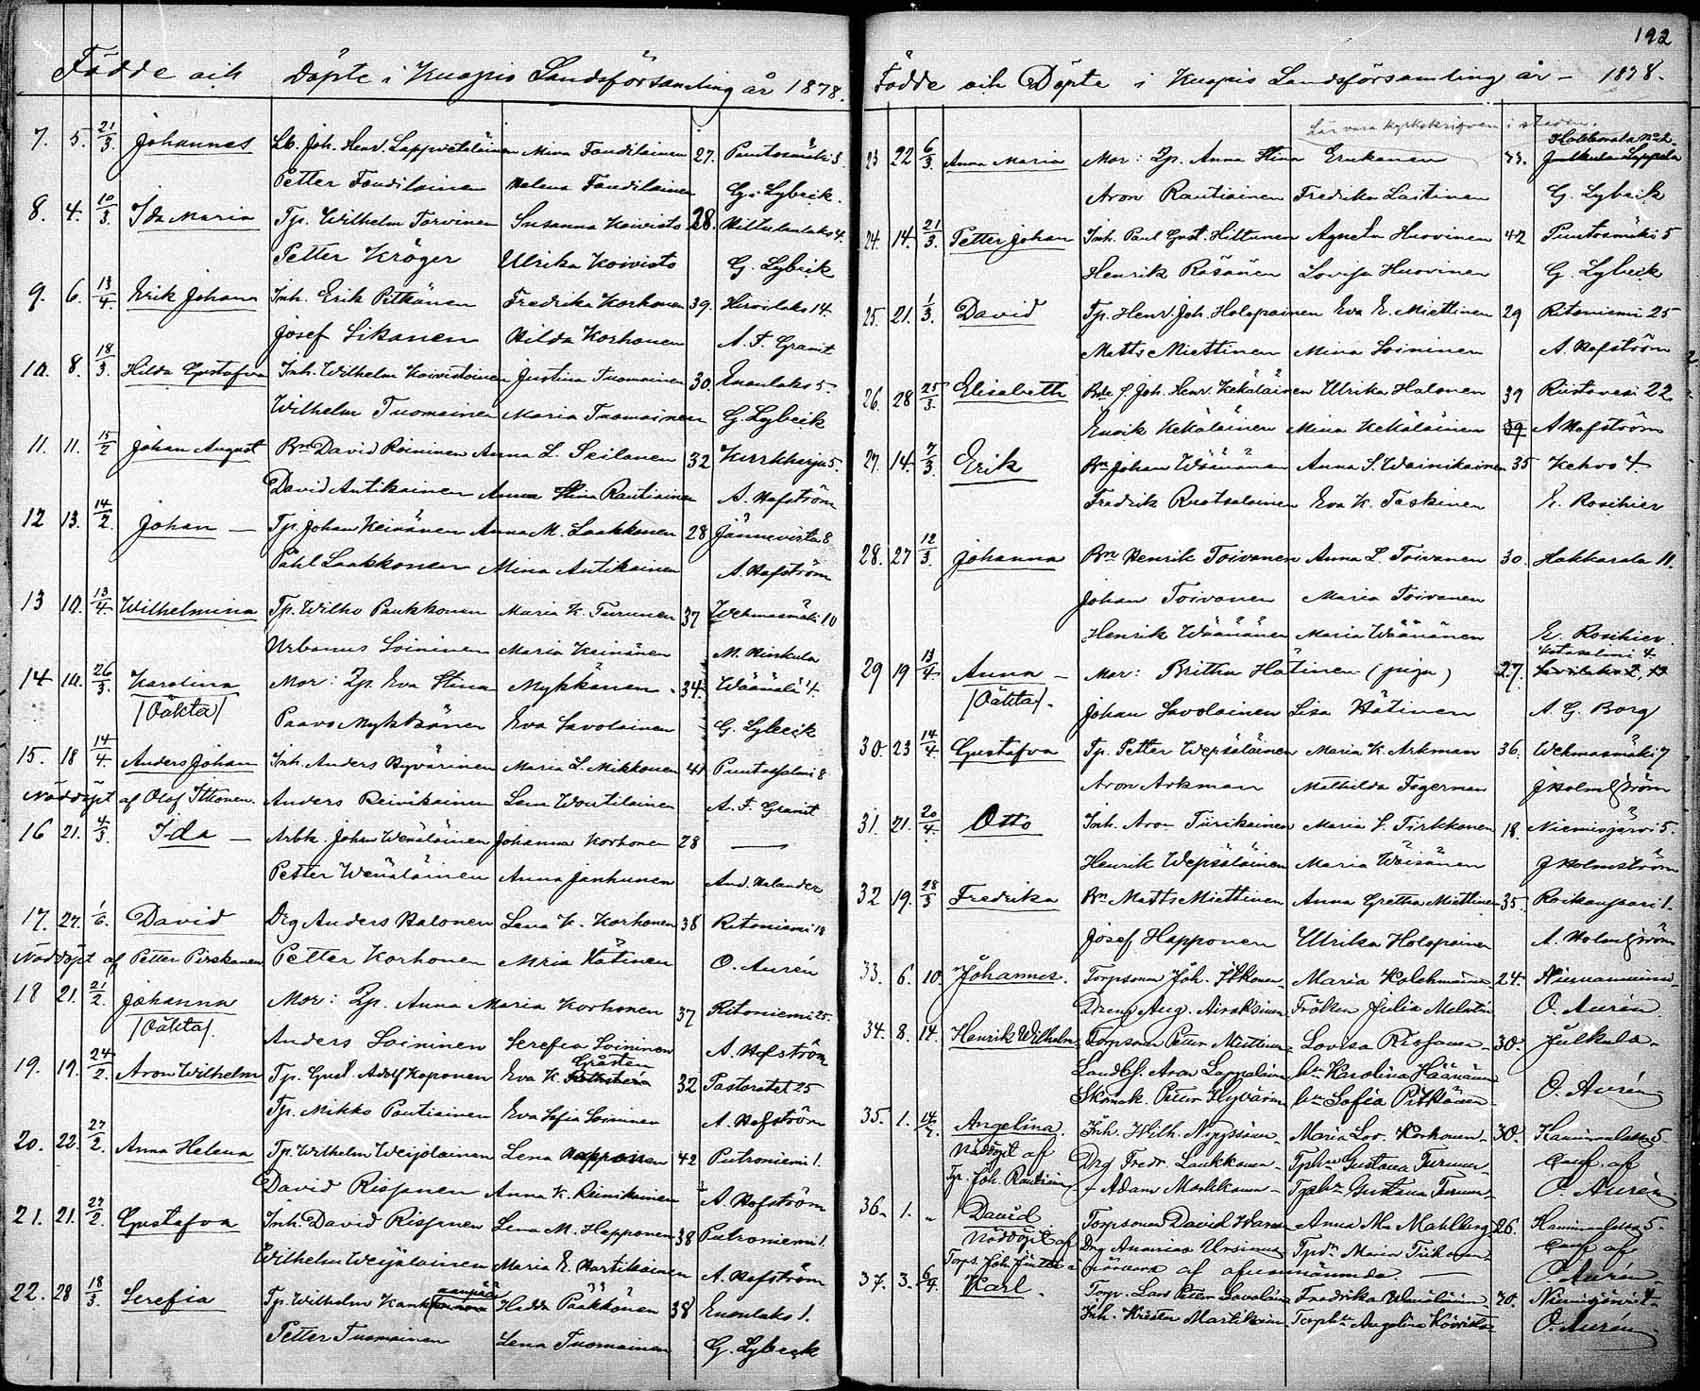 192
Födde och Döpte i Kuopio Landsförsamling år 1878.
7. 5. 21/3. Johannes Lb. Joh. Henr. Lappveteläinen Mina Tandilainen 27. Puutosmäki 3.
Petter Tandilainen Helena Tandilainen G. Lybeck.
8. 4. 10/3. Ida Maria Tp. Wilhelm Torvinen Susanna Koivisto 28. Hiltulanlaks 4.
Petter Kröger Ulrika Koivisto G. Lybeck
9. 6. 13/4. Erik Johan Inh. Erik Pitkänen Fredrika Korhonen 39. Hirvilaks 14
Josef Sikanen Hilda Korhonen A. F. Granit
10. 8. 18/3. Hilda Gustafva Inh. Wilhelm Koivistoinen Justina Tuomainen 30. Enonlaks 5
Wilhelm Tuomainen Maria Tuomainen G. Lybeck
11. 11. 15/2 Johan August Bn David Roininen Anna L. Seilanen 32 Kurkharju 5.
David Antikainen Anna Stina Rautiainen A. Hofström
12 13. 14/2. Johan Tp. Johan Keinänen Anna M. Laakkonen 28 Jännevirta 8
Påhl Laakkonen Mina Antikainen A. Hofström
13 10. 13/4. Wilhelmina Tp. Wilho Paukkonen Maria K. Turunen 37 Wehmasmäki 10
Urbanus Soininen Maria Keinänen M. Ninkula
14 10. 26/3. Karolina Mor: Zp. Eva Stina Mykkänen 34. Wäänälä 4.
/Oäkta/ Paavo Mykkänen Eva Savolainen G. Lybeck
15. 18 14/4. Anders Johan Inh. Anders Hyvärinen Maria L. Mikkonen 41 Puutossalmi 8
Nöddöpt af Olof Ittonen. Anders Reinikainen Lena Woutilainen A. F. Granit
16 21. 4/3. Ida Arbk. Johan Wenäläinen Johanna Korhonen 28
Petter Wenäläinen Anna Janhunen And. Helander
17. 27. 1/6. David Drg Anders Halonen Lena K. Korhonen 38 Ritoniemi 18
Nöddöpt af Petter Pirskanen Petter Korhonen Maria Hätinen O. Aurén
18 21. 21/2. Johanna Mor: Zp. Anna Maria Korhonen 37 Ritoniemi 25.
/Oäkta/. Anders Soininen Serefia Soininen A. Hofström
19. 19. 24/2. Aron Wilhelm Tp. Gust. Adolf Kaponen Eva K. Gråsten 32 Pastoratet 25
Tp. Mikko Pautiainen Eva Sofia Soininen A. Hofström
20. 22. 27/2. Anna Helena Tp. Wilhelm Weijolainen Lena Happonen 42 Putroniemi 1.
David Rissanen Anna K. Reinikainen A. Hofström
21. 21. 27/2. Gustafva Inh. David Rissanen Lena M. Happonen 38 Putroniemi 1.
Wilhelm Weijolainen Maria E. Hartikainen A. Hofström
22. 28 18/3. Serefia Tp. Wilhelm Kankkunen Hedda Pääkkönen 38 Enonlaks 1.
Petter Tuomainen Lena Tuomainen G. Lybeck
Födde och Döpte i Kuopio Landsförsamling år 1878.
Lär vara kyrkskrifven i staden.
23 22 6/3. Anna Maria Mor: Zp. Anna Stina Erukanen Julkula Lappela
Aron Rautiainen Fredrika Laitinen G. Lybeck
24. 14. 21/3. Petter Johan Inh. Paul Gust. Hiltunen Agneta Huovinen 42 Puutosmäki 5
Henrik Räsänen Lovisa Huovinen G. Lybeck
25. 21. 1/3. David Tp. Henr. Joh. Holopainen Eva E. Miettinen 29 Ritoniemi 25
Matts Miettinen Mina Soininen A. Hofström
26. 28 25/3. Elisabeth Bde S. Joh. Henr. Kekäläinen Ulrika Halonen 39 Riistavesi 22
Henrik Kekäläinen Mina Kekäläinen 39 A Hofström
27. 14. 7/3. Erik Bn Johan Wäänänen Anna S. Wainikainen 35 Kehvo 4.
Fredrik Ruotsalainen Eva K. Taskinen E. Rosihier
28. 27 12/3. Johanna Bn Henrik Toivanen Anna L. Toivanen 30. Hakkarala 11.
Johan Toivonen Maria Toivanen
Henrik Wäänänen Maria Wäänänen E. Rosihier
29 19 13/4. Anna Mor: Britha Hätinen (piga) 27. Kotasalmi 4
/Oäkta/. Johan Savolainen Lisa Hätinen A. G. Borg
30. 23 14/4. Gustafva Tp. Petter Wepsäläinen Maria K. Arkman 36. Wehmasmäki 7
Aron Arkman Mathilda Fagerman J Holmström
31. 21. 20/4. Otto Inh. Aron Tiirikainen Maria S. Tirkkonen 18. Niemisjärvi 5.
Henrik Wepsäläinen Maria Wäisänen J Holmström
32 19. 28/3 Fredrika Bn Matts Miettinen Anna Gretha Miettinen 35. Roikansaari 1.
Josef Happonen Ulrika Holopainen A. Holmström
33. 6. 10. Johannes. Torpsonen Joh. Itkonen Maria Kolehmainen 24.
Dreng Aug. Airaksinen Fröken Julia Melartin O. Aurén
34. 8. 14. Henrik Wilhelm Torpsonen Petter Miettinen Lovisa Rissanen 30. Julkula.
Landbf. Aron Lappalainen hu Karolina Häänänen O. Aurén
Skomak. Petter Hyvärinen hu Sofia Pitkänen
35. 1. Angelina. Inh. Wilh. Nissinen Maria Lov. Korhonen 30.
Nöddöpt af Drg Fredr. Laukkanen Gustava Turunen Conf. af
Tp. Joh. Rautiainen Adam Martikainen Gustava Turunen O. Aurén
36. 1. " David Torpsonen David Anna Ma Mahlberg 26.
Nöddöpt af Drg Ananias Ursinus Maria Tiikanen Conf. af
Torps. Joh. O. Aurén
37. 3. 6/4. Karl. Torp. Lars Petter Savolainen Fredrika 20. Niemisjärvi
Inh. Krister Martikainen Angelina Koivisto O. Aurén.